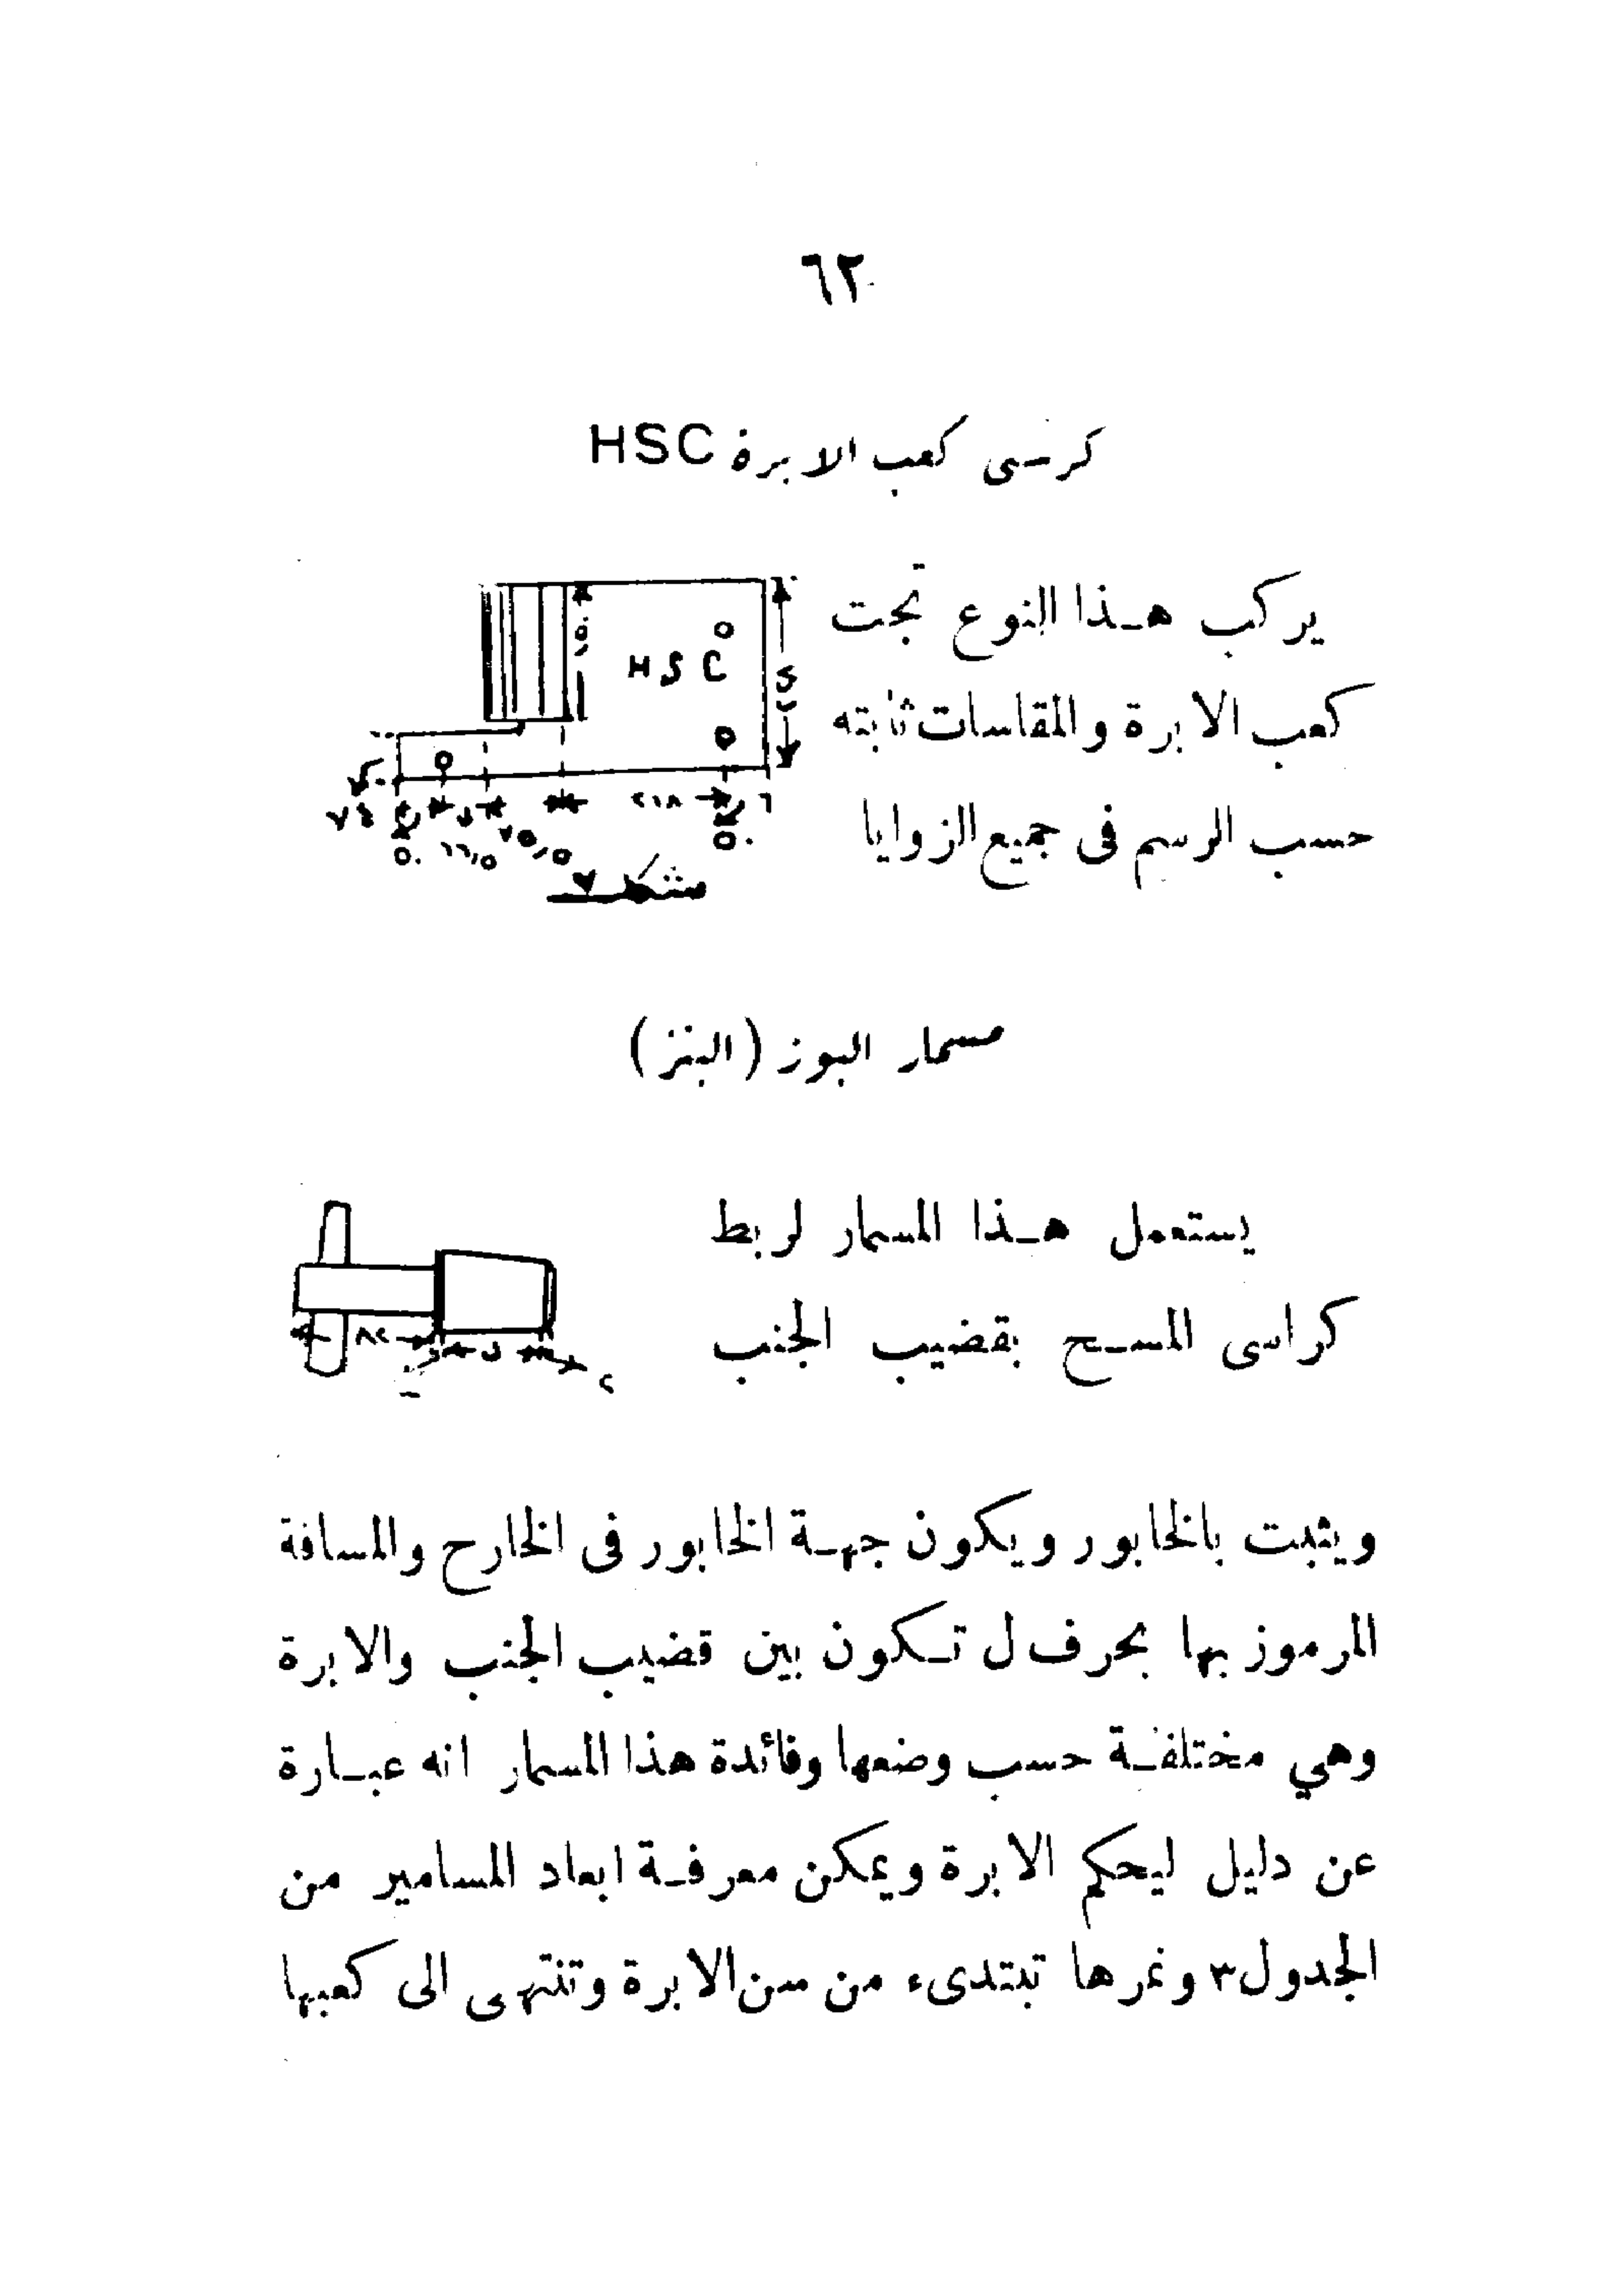 ٦٢
كرسى كعب الابرة HSC
يركب هذا النوع تحت
كعب الابرة والمقاسات ثابته
حسب الرسم فى جميع الزوايا
HSC
٢١٨
٦
٥٠
٧٥٫٥
٥٠
شكل ٧
مسمار البوز (البنز)
يستعمل هذا المسمار لربط
كراسى المسح بقضيب الجنب
٨٢
ل
٢
ويثبت بالخابور ويكون جهة الخابور فى الخارح والمسافة
المرموز بها بحرف ل تكون بين قضيب الجنب والابرة
وهي مختلفة حسب وضعها وفائدة هذا المسمار انه عبارة
عن دليل ليحكم الابرة ويمكن معرفة ابعاد المسامير من
الجدول ٣ ونمرها تبتدىء من سن الابرة وتنتهى الى كعبها